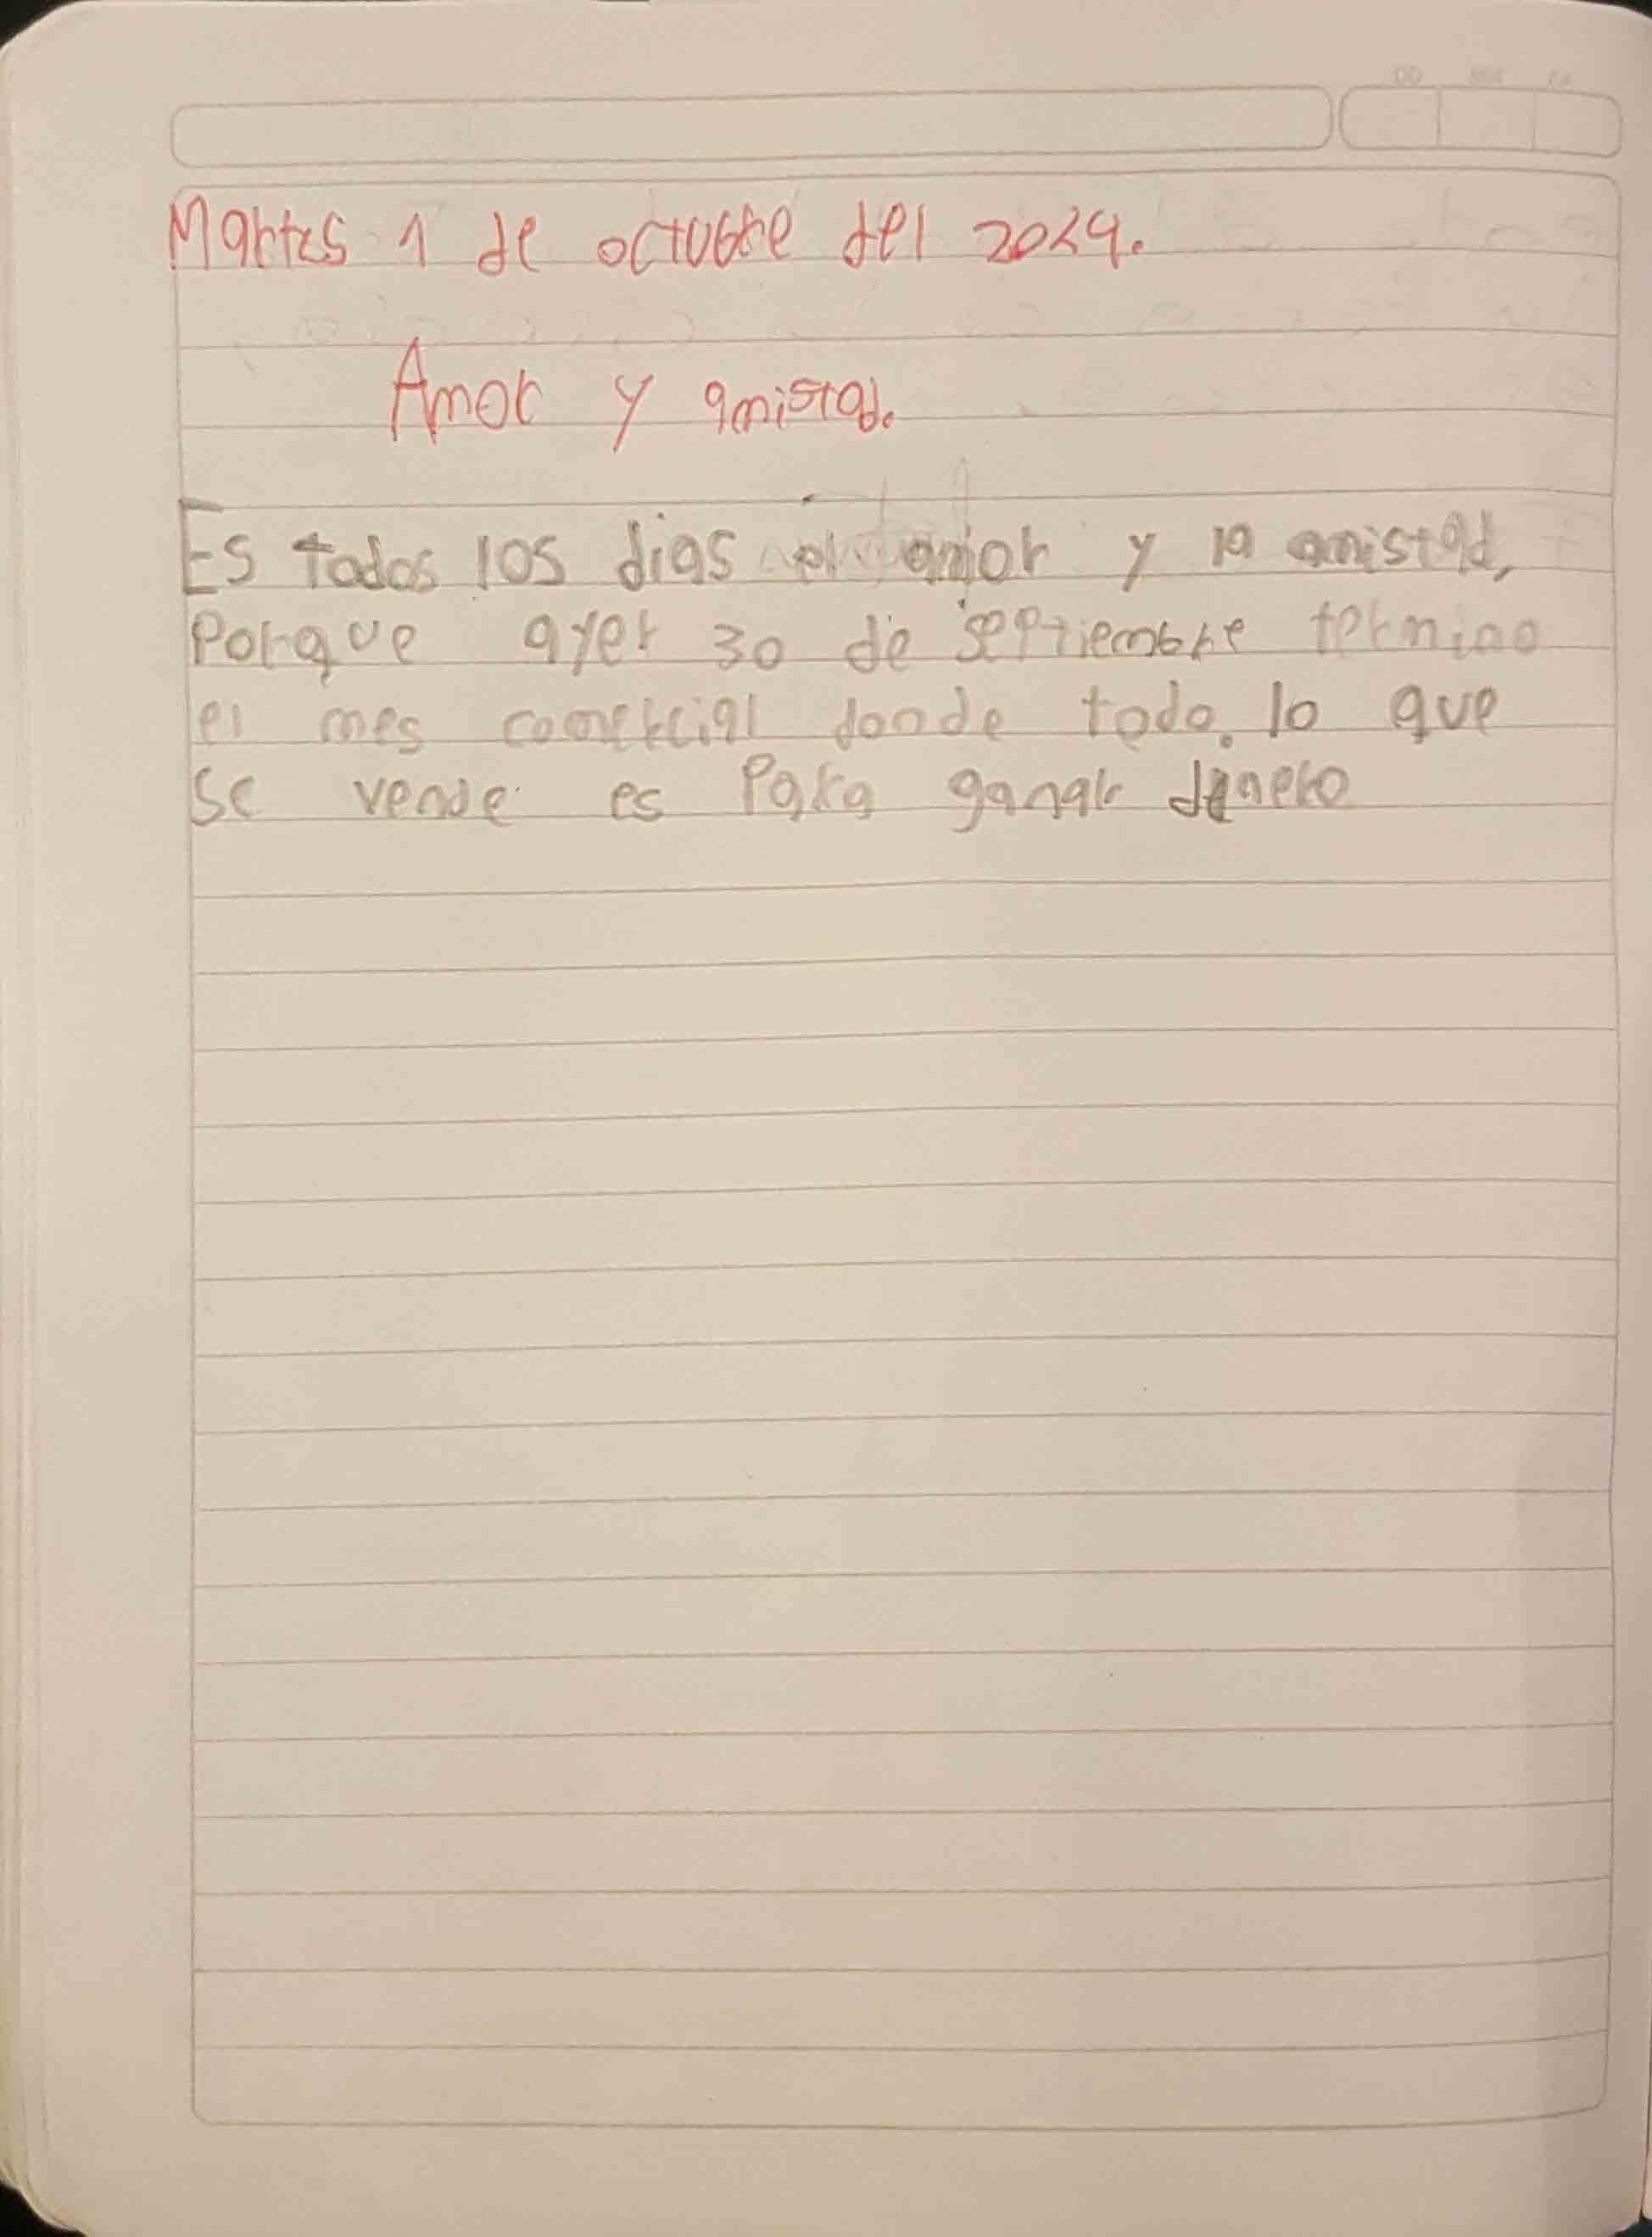 Martes 1 de octubre del 2024.
Amor y amistad.
Es todos los dias el amor y la amistad,
Porque ayer 30 de septiembre termino
el mes comercial donde todo lo que
se vende es Para ganar dinero